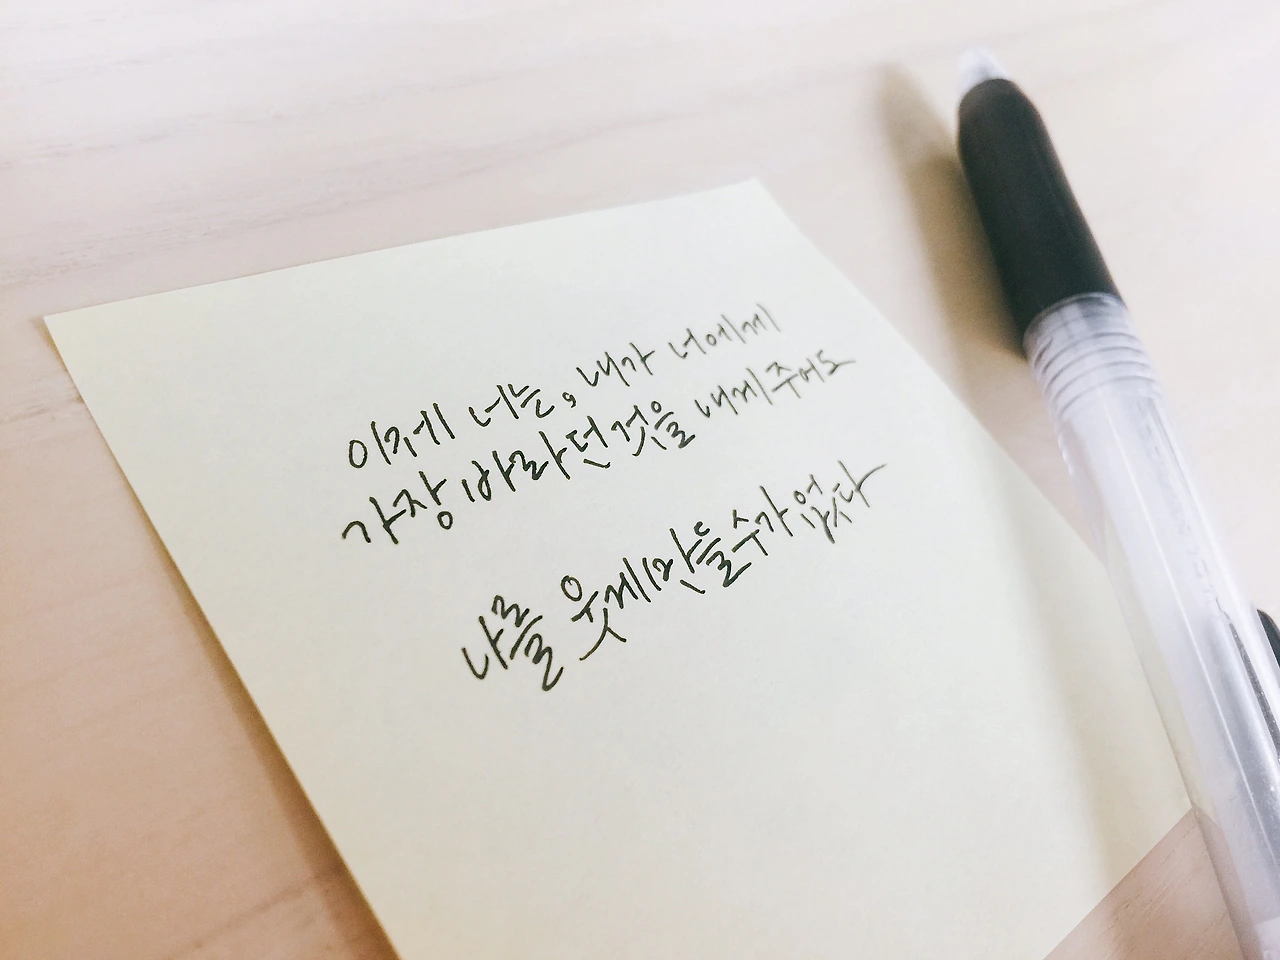 이제 너는, 내가 너에게
가장 바라던 것을 내게 주어도
나를 웃게 만들 수가 없다